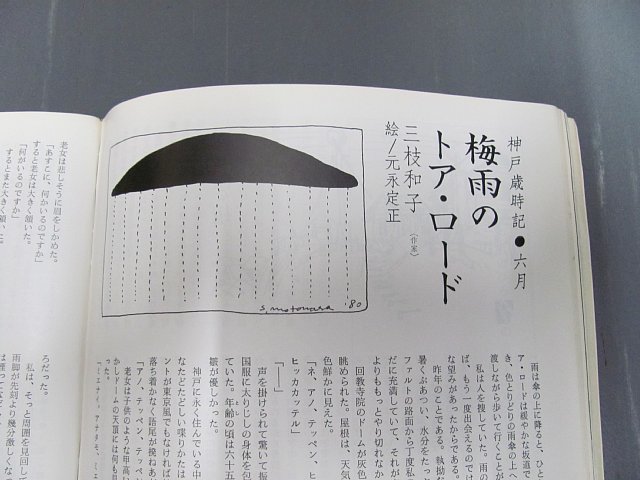 神戸歳時記●六月
梅雨の
トア・ロード
三枝和子
（作家）
絵/元永定正
S. motonaga '80
雨は傘の上に降ると、ひと
ア・ロードは緩やかな坂道で
き、色とりどりの雨傘の上へ
渡しながら歩いて行くことが
私は人を捜していた。雨の
ば、もう一度出会えるのでは
な望みがあったからである。
昨年のことである。執拗な
暑くぶあつい、水分をたっ
ファルトの路面から丁度私
だに充満していて、それが
よりももっとやり切れなか
回教寺院のドームが灰色
眺められた。屋根は、天気
色鮮かに見えた。
「ネ、アノ、テッペン、ヒ
ヒッカカッテル」
「――」
声を掛けられて驚いて振
国服に太りじしの身体を包
ていた。年齢の頃は六十五
皺が優しかった。
神戸に永く住んでいる中
なたどたどしい喋りかたは
ントが東京風でもなければ
落ち着かなく語尾が撥ねあ
「アノ、テッペン、テッペ
老女は子供のような甲高い
かしドームの天頂には何も見
った。
ろだった。
私は、そっと周囲を見回して
雨脚が先刻より幾分激しくな
老女は悲しそうに眉をしかめた。
「あすこに、何かいるのですか」
すると老女は大きく頷いた。
「何がいるのですか」
するとまた大きく頷いた